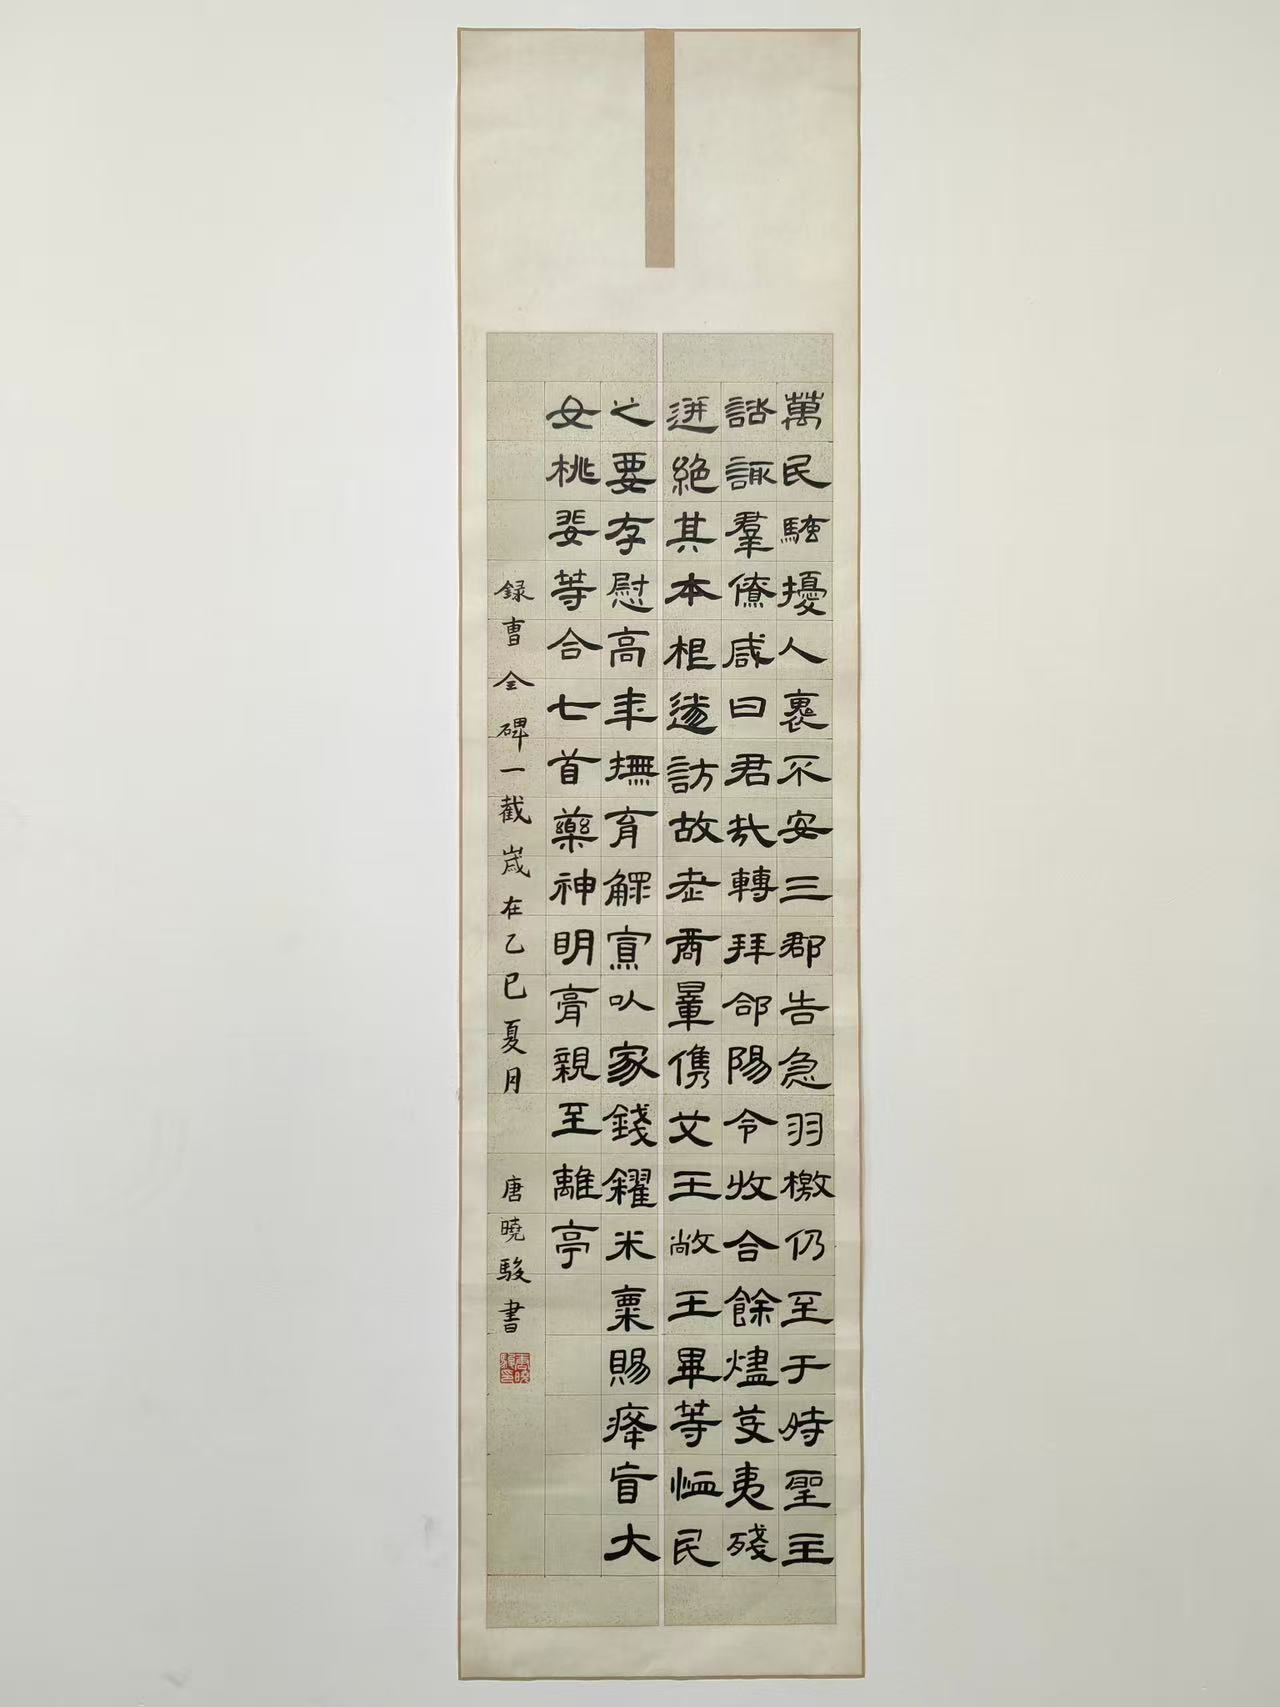 萬民騷擾人裹不安三郡告急羽檄仍至于時聖主
諮諏羣僚咸曰君哉轉拜郃陽令收合餘燼芟夷殘
迸絕其本根遂訪故老商量儁艾王敞王畢等恤民
之要存慰高年撫育鰥寡以家錢糴米粟賜癃盲大
女桃婓等合七首藥神明膏親至離亭
録曹全碑一截歲在乙巳夏月 唐曉駿書
唐曉駿印